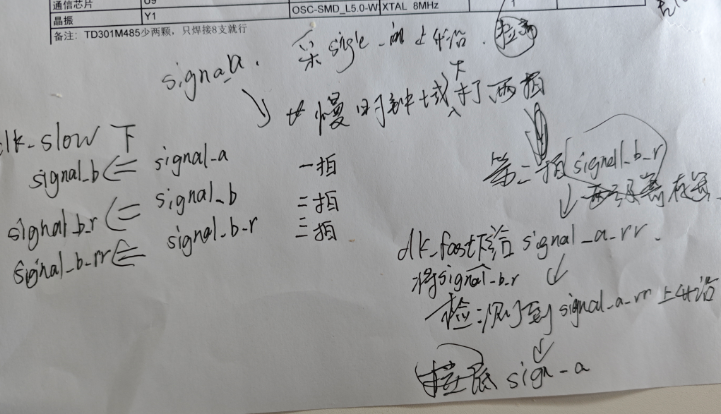 通信芯片 U9
晶振 Y1 OSC-SMD_L5.0-W XTAL 8MHz 1
备注: TD301M485少两颗，只焊接8支就行
signal_a. 采 single_in 上升沿. 拉高
慢时钟域下打两拍
clk_slow 下
signal_b <= signal_a 一拍
signal_b_r <= signal_b 二拍
signal_b_rr <= signal_b_r 三拍
第二拍 signal_b_r
clk_fast下 将signal_b_r 给 signal_a_rr.
检测到 signal_a_rr 上升沿
拉低 sign_a